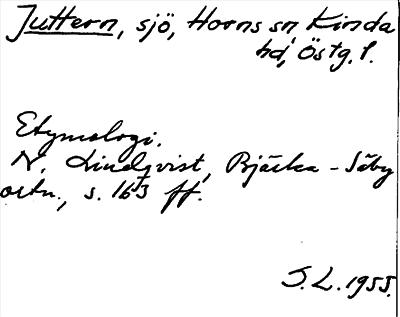 Juttern, sjö, Horns sn, Kinda
hd, Östg. l.
Etymologi.
N. Lindqvist, Bjärka-Säby
ortn., s. 163 ff.
S.L. 1955.